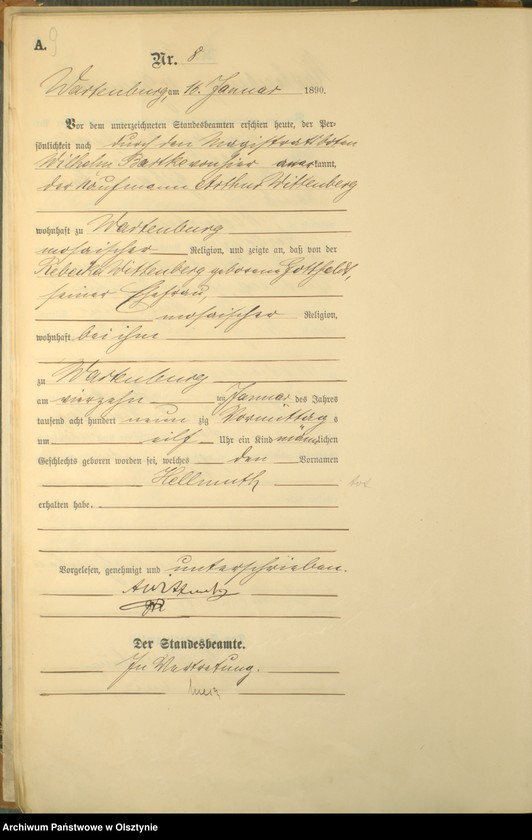 A. 9
Nr. 8
Wartenburg, am 16. Januar 1890.
Vor dem unterzeichneten Standesbeamten erschien heute, der Per-
sönlichkeit nach durch den Magistrats
Wilhelm von hier anerkannt,
der Kaufmann Arthur Wittenberg
wohnhaft zu Wartenburg
mosaischer Religion, und zeigte an, daß von der
Rebecka Wittenberg geborene Gottfeldt,
seiner Ehefrau,
mosaischer Religion,
wohnhaft bei ihm
zu Wartenburg
am vierzehn ten Januar des Jahres
tausend acht hundert neun zig Vormittag s
um eilf Uhr ein Kind männlichen
Geschlechts geboren worden sei, welches den Vornamen
Hellmuth
erhalten habe.
Vorgelesen, genehmigt und unterschrieben.
Der Standesbeamte.
In Vertretung.
Archiwum Państwowe w Olsztynie